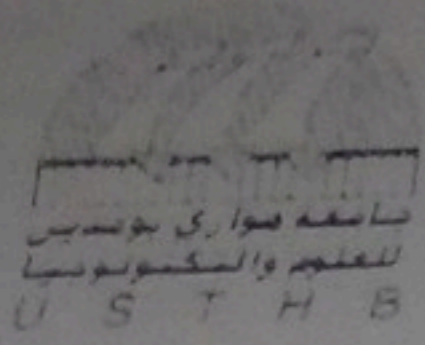 جامعة هواري بومدين
للعلوم والتكنولوجيا
U S T H B